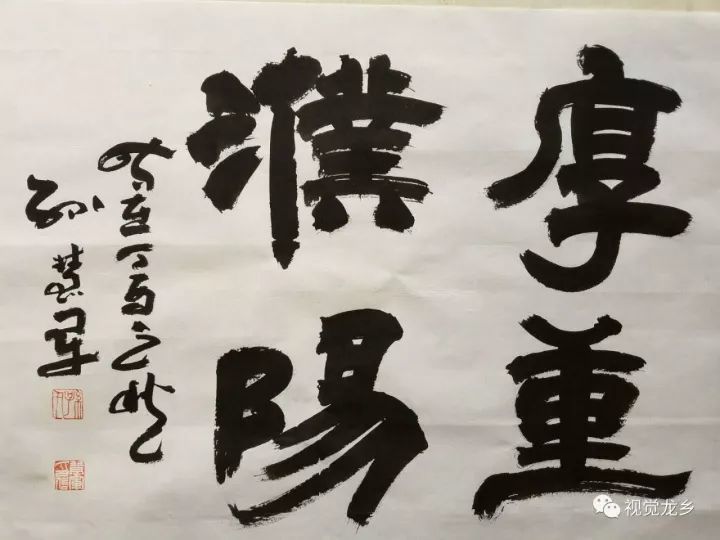 厚重
濮陽
时在丁酉之秋
孙慧军
视觉龙乡